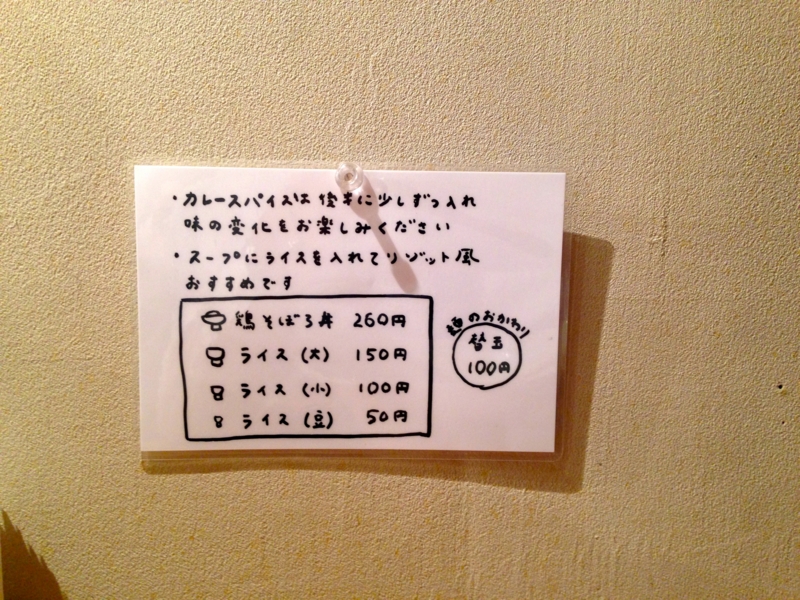 ・カレースパイスは後半に少しずつ入れ
味の変化をお楽しみください
・スープにライスを入れてリゾット風
おすすめです
鶏そぼろ丼 260円
ライス (大) 150円
ライス (小) 100円
ライス (豆) 50円
麺のおかわり
替玉
100円